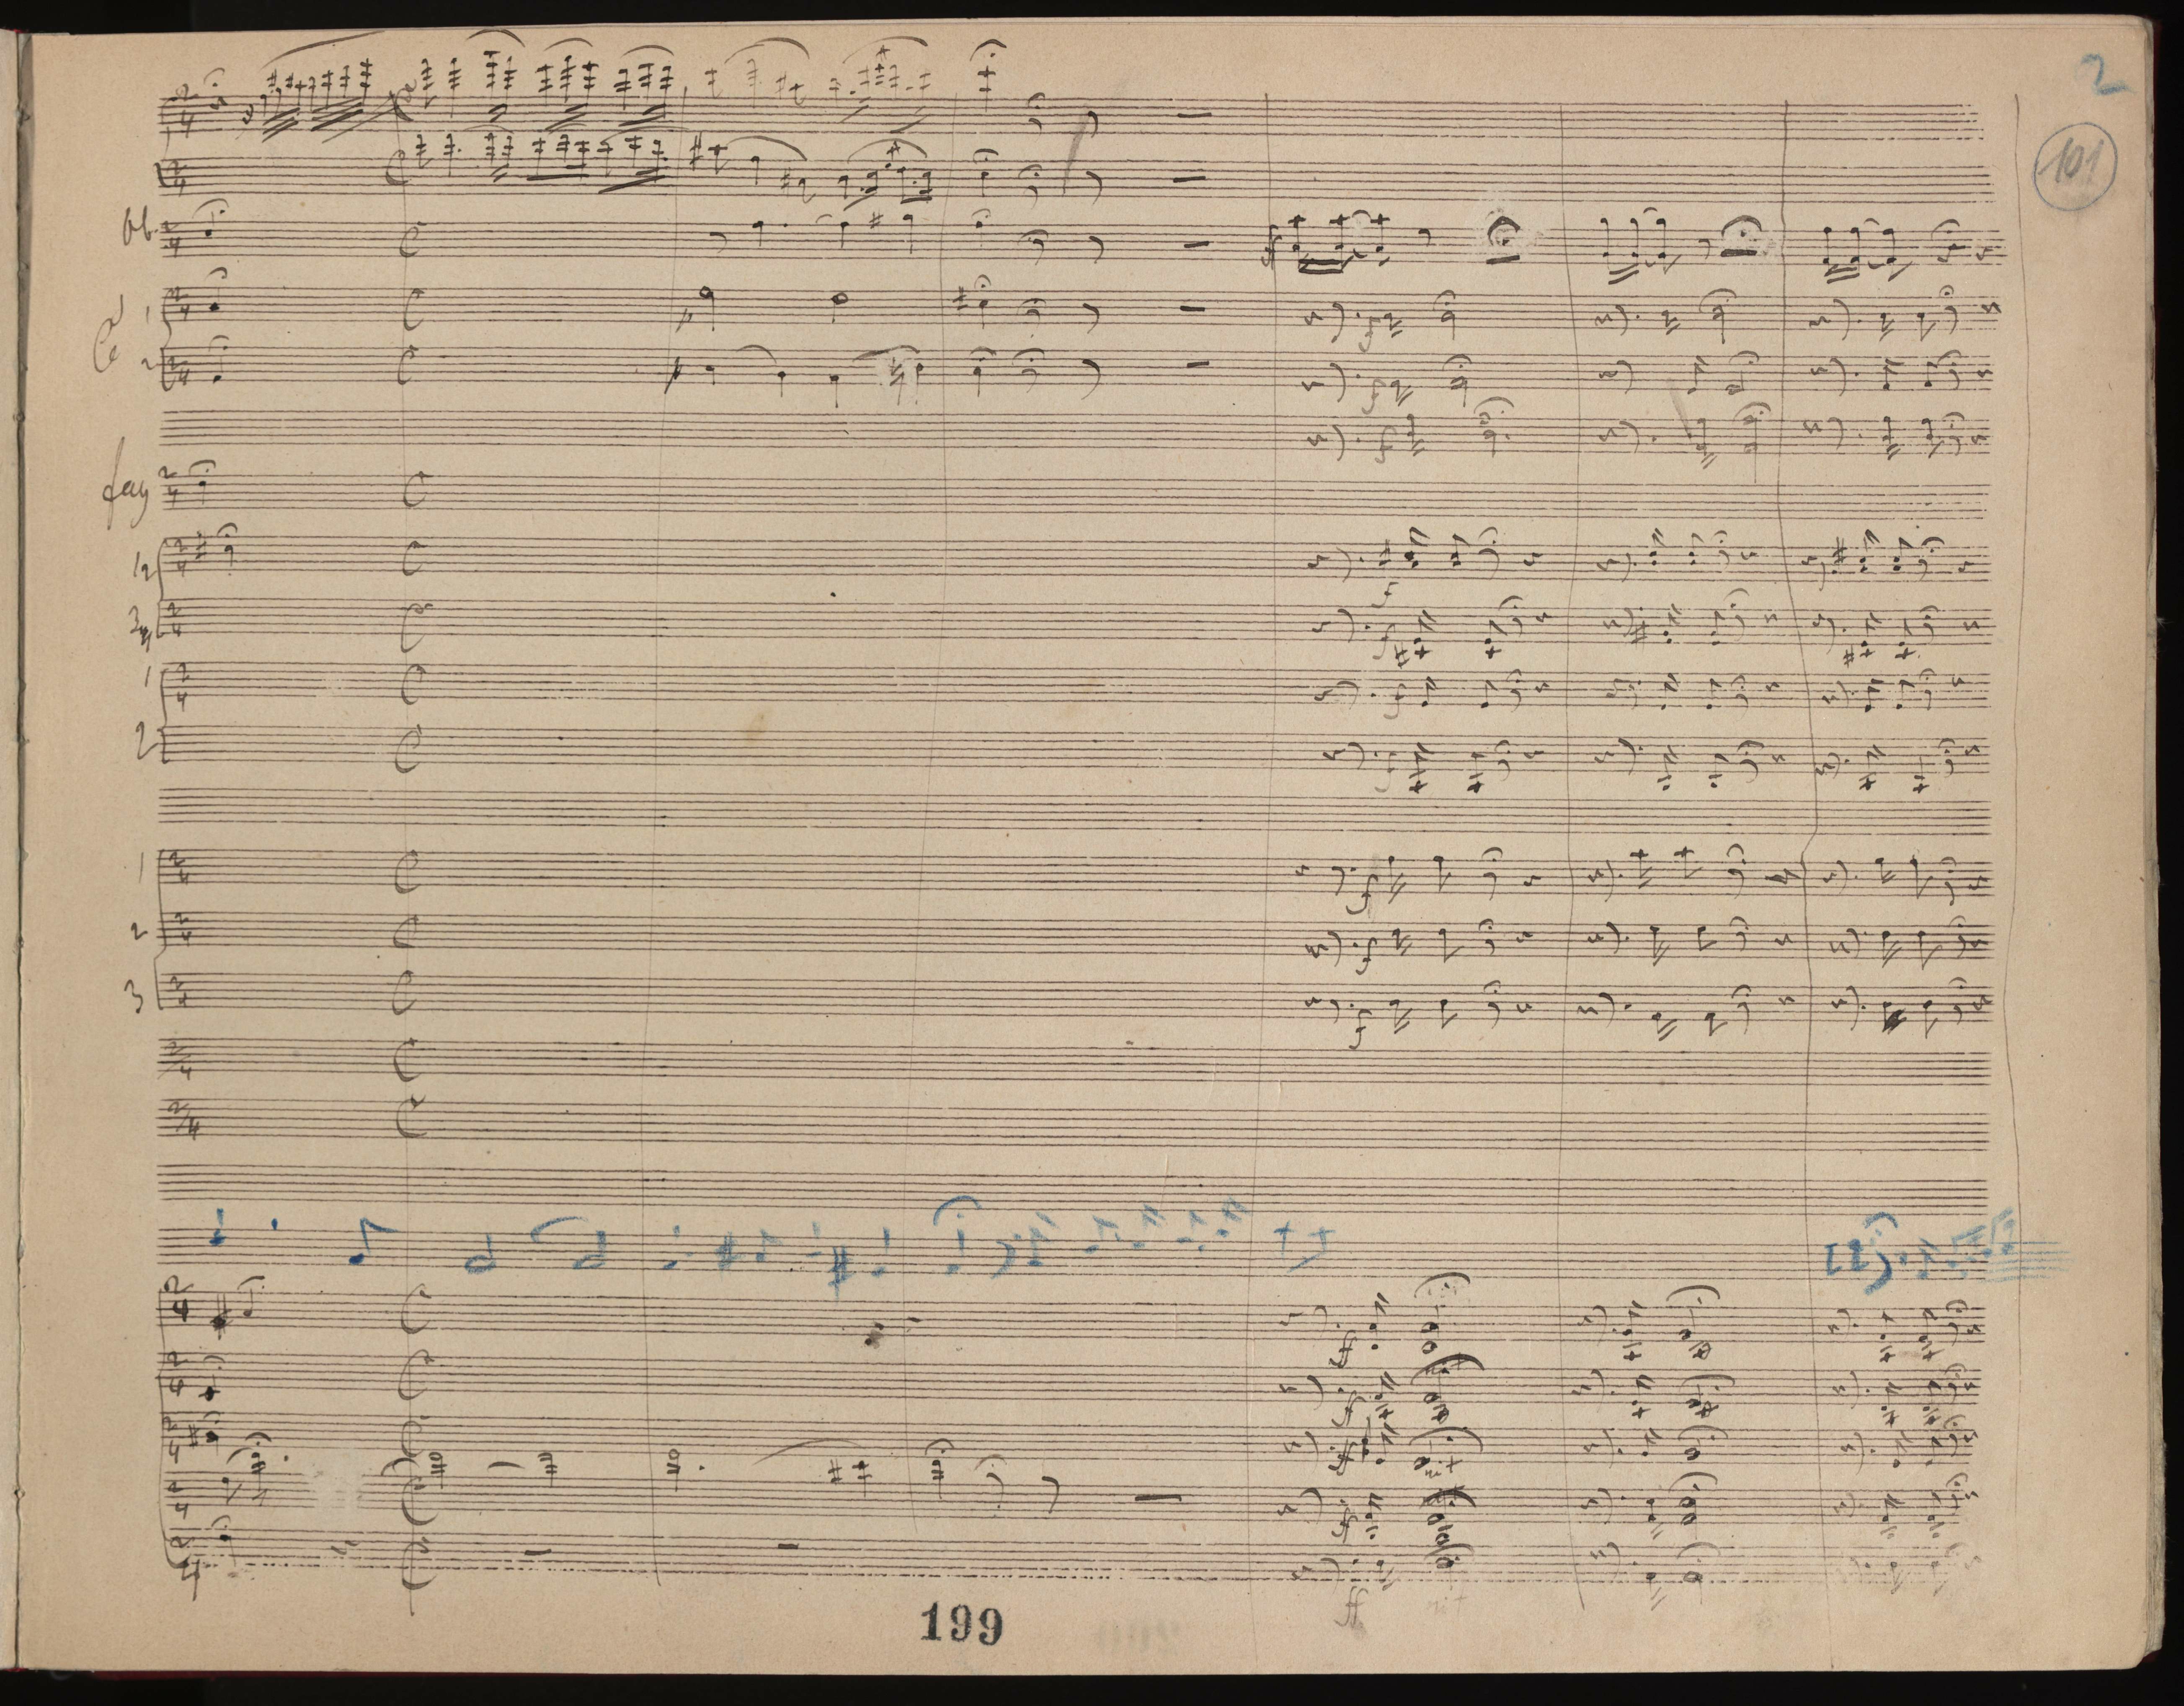 2
101
ob.
1
2
fag
1 2
3 4
1
2
1
2
3
199